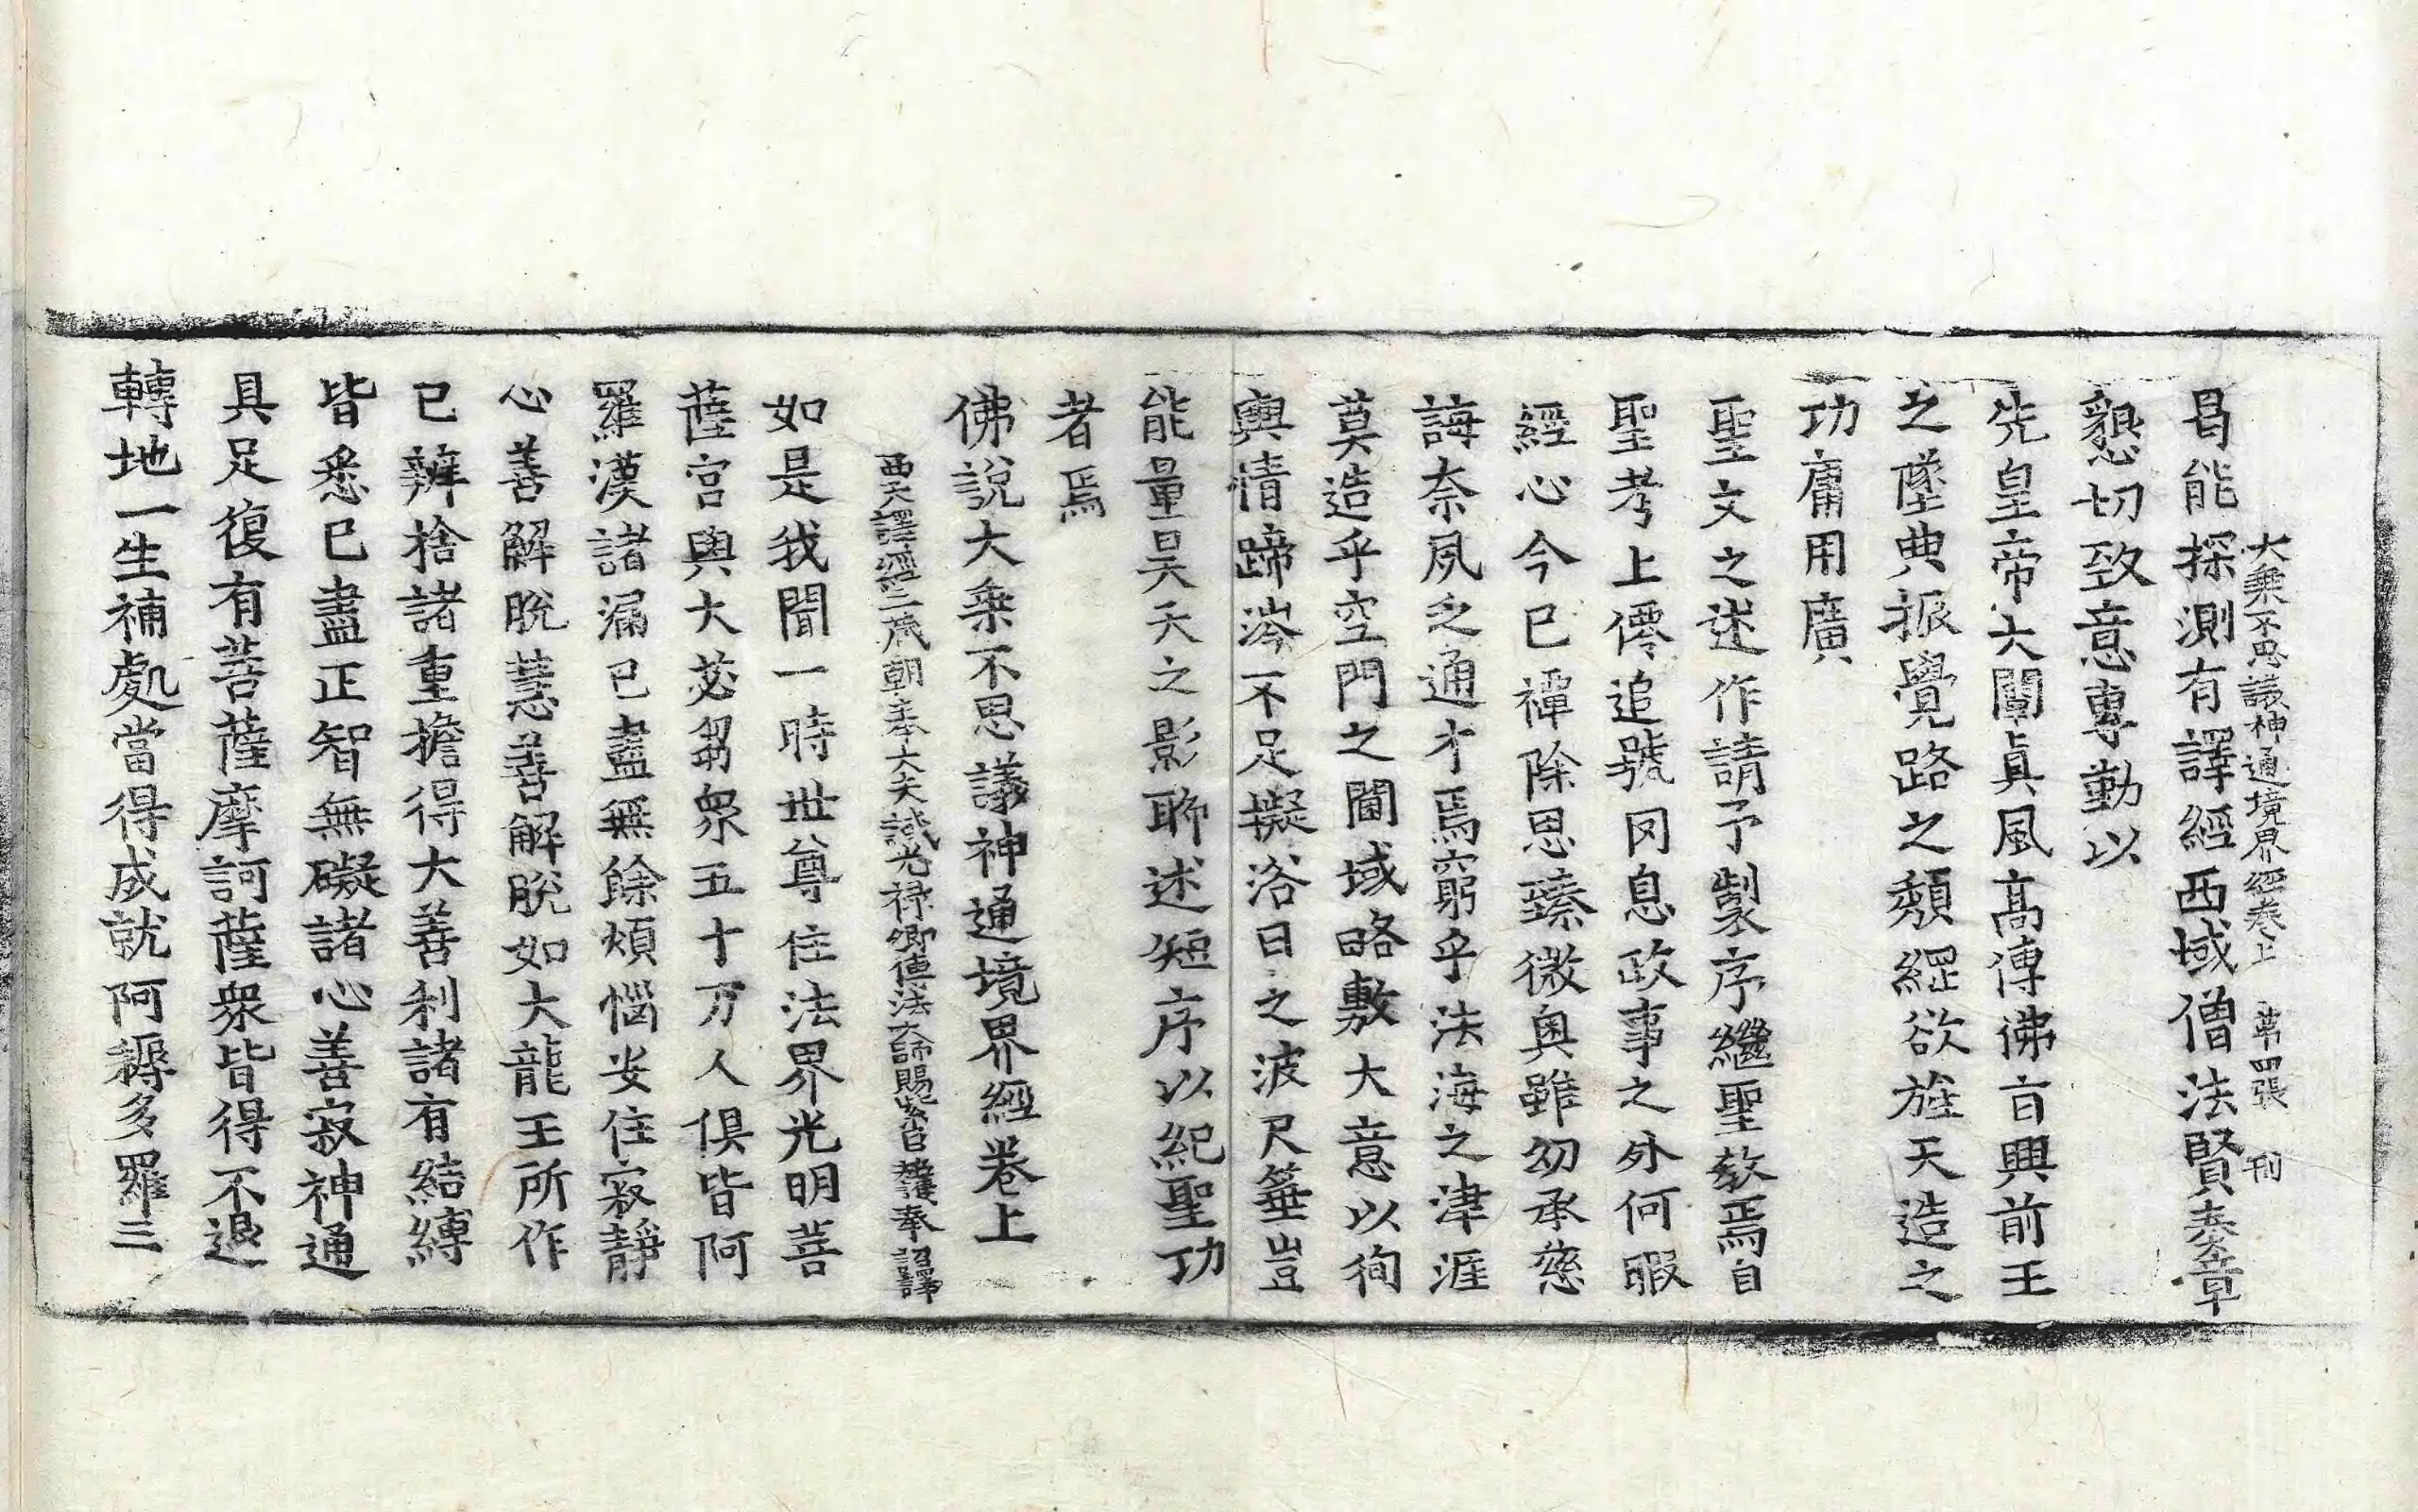 大乘不思議神通境界經卷上 第四張 刊
曷能探測有譯經西域僧法賢奏章
懇切致意專勤以
先皇帝大闡眞風髙傳佛旨興前王
之墜典振覺路之頹綱欲旌天造之
功庸用廣
聖文之述作請予製序繼聖教焉自
聖考上僊追號罔息政事之外何暇
經心今已禫除思臻微奥雖幼承慈
誨奈夙乏通才焉窮乎法海之津涯
莫造乎空門之閫域略敷大意以徇
輿情蹄涔不足擬浴日之波尺箠豈
能量昊天之影聊述短序以紀聖功
者焉
佛說大乘不思議神通境界經卷上
西天譯經三藏朝奉大夫試光祿卿傳法大師賜紫臣施護奉 詔譯
如是我聞一時世尊住法界光明菩
薩宫與大苾芻衆五十万人俱皆阿
羅漢諸漏已盡無餘煩惱安住寂靜
心善解脫慧善解脫如大龍王所作
已辦捨諸重擔得大善利諸有結縛
皆悉已盡正智無礙諸心善寂神通
具足復有菩薩摩訶薩衆皆得不退
轉地一生補處當得成就阿耨多羅三